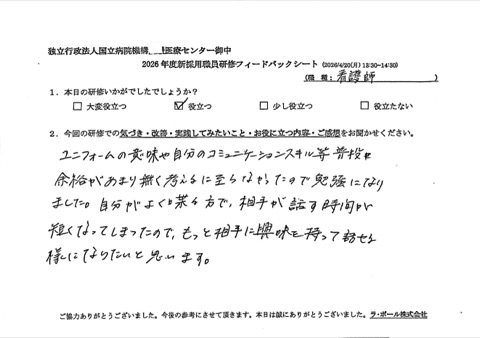 独立行政法人国立病院機構 医療センター御中
2026年度新採用職員研修フィードバックシート (2026/4/20(月) 13:30~14:30)
(職種：看護師)
1．本日の研修いかがでしたでしょうか？
□ 大変役立つ ☑ 役立つ □ 少し役立つ □ 役立たない
2．今回の研修での気づき・改善・実践してみたいこと・お役に立つ内容・ご感想をお聞かせください。
ユニフォームの意味や自分のコミュニケーションスキル等普段は
余裕があまり無く考えるに至らなかったので勉強になり
ました。自分がよく 方で、相手が話す時間が
短くなってしまったので、もっと相手に興味を持って話せる
様になりたいと思います。
ご協力ありがとうございました。今後の参考にさせて頂きます。本日は誠にありがとうございました。ラ・ポール株式会社